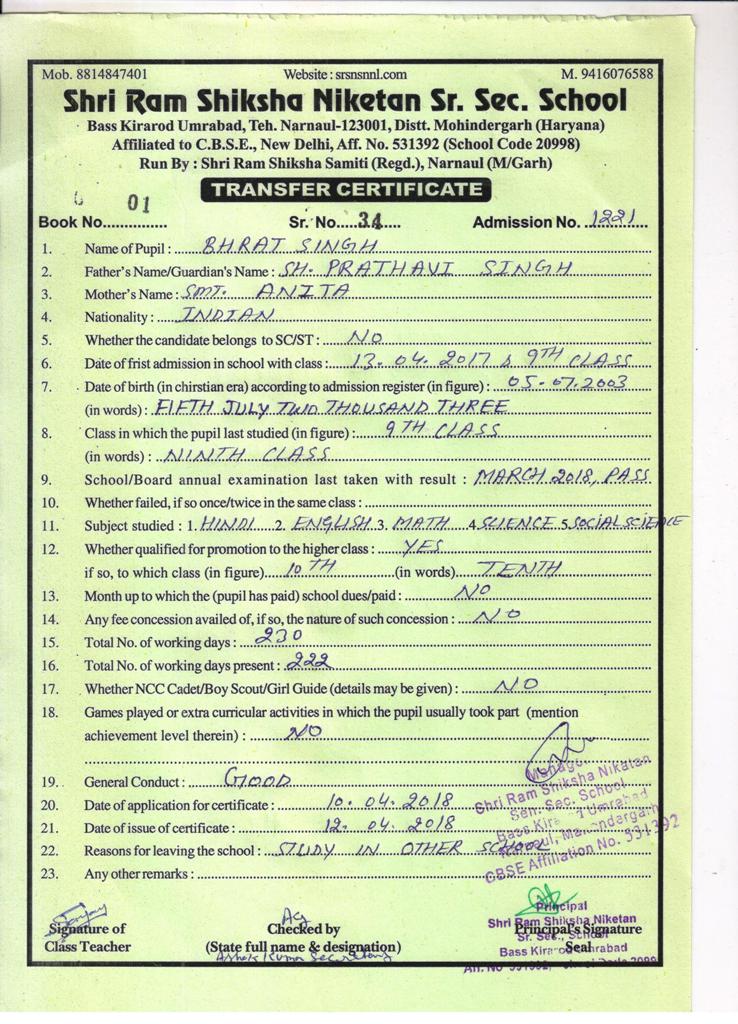 Mob. 8814847401 Website : srsnsnnl.com M. 9416076588
Shri Ram Shiksha Niketan Sr. Sec. School
Bass Kirarod Umrabad, Teh. Narnaul-123001, Distt. Mohindergarh (Haryana)
Affiliated to C.B.S.E., New Delhi, Aff. No. 531392 (School Code 20998)
Run By : Shri Ram Shiksha Samiti (Regd.), Narnaul (M/Garh)
TRANSFER CERTIFICATE
Book No. 01 Sr. No. 34 Admission No. 1221
1. Name of Pupil : BHRAT SINGH
2. Father's Name/Guardian's Name : SH. PRATHAVI SINGH
3. Mother's Name : SMT. ANITA
4. Nationality : INDIAN
5. Whether the candidate belongs to SC/ST : NO
6. Date of frist admission in school with class : 13.04.2017 & 9TH CLASS
7. Date of birth (in chirstian era) according to admission register (in figure) : 05-07.2003
(in words) : FIFTH JULY TWO THOUSAND THREE
8. Class in which the pupil last studied (in figure) : 9TH CLASS
(in words) : NINTH CLASS
9. School/Board annual examination last taken with result : MARCH 2018, PASS
10. Whether failed, if so once/twice in the same class :
11. Subject studied : 1. HINDI 2. ENGLISH 3. MATH 4. SCIENCE 5. SOCIAL SCIENCE
12. Whether qualified for promotion to the higher class : YES
if so, to which class (in figure) 10TH (in words) TENTH
13. Month up to which the (pupil has paid) school dues/paid : NO
14. Any fee concession availed of, if so, the nature of such concession : NO
15. Total No. of working days : 230
16. Total No. of working days present : 222
17. Whether NCC Cadet/Boy Scout/Girl Guide (details may be given) : NO
18. Games played or extra curricular activities in which the pupil usually took part (mention
achievement level therein) : NO
19. General Conduct : GOOD
20. Date of application for certificate : 10.04.2018
21. Date of issue of certificate : 12.04.2018
22. Reasons for leaving the school : STUDY IN OTHER SCHOOL
23. Any other remarks :
Shri Ram Shiksha Nikatan
Sen. Sec. School
CBSE Affiliation No. 531392
Signature of
Class Teacher
Checked by
(State full name & designation)
Ashok Kumar Secretary
Principal
Principal's Signature
Seal
Shri Ram Shiksha Niketan
Sr. Sec. School
Bass Kirarod Umrabad